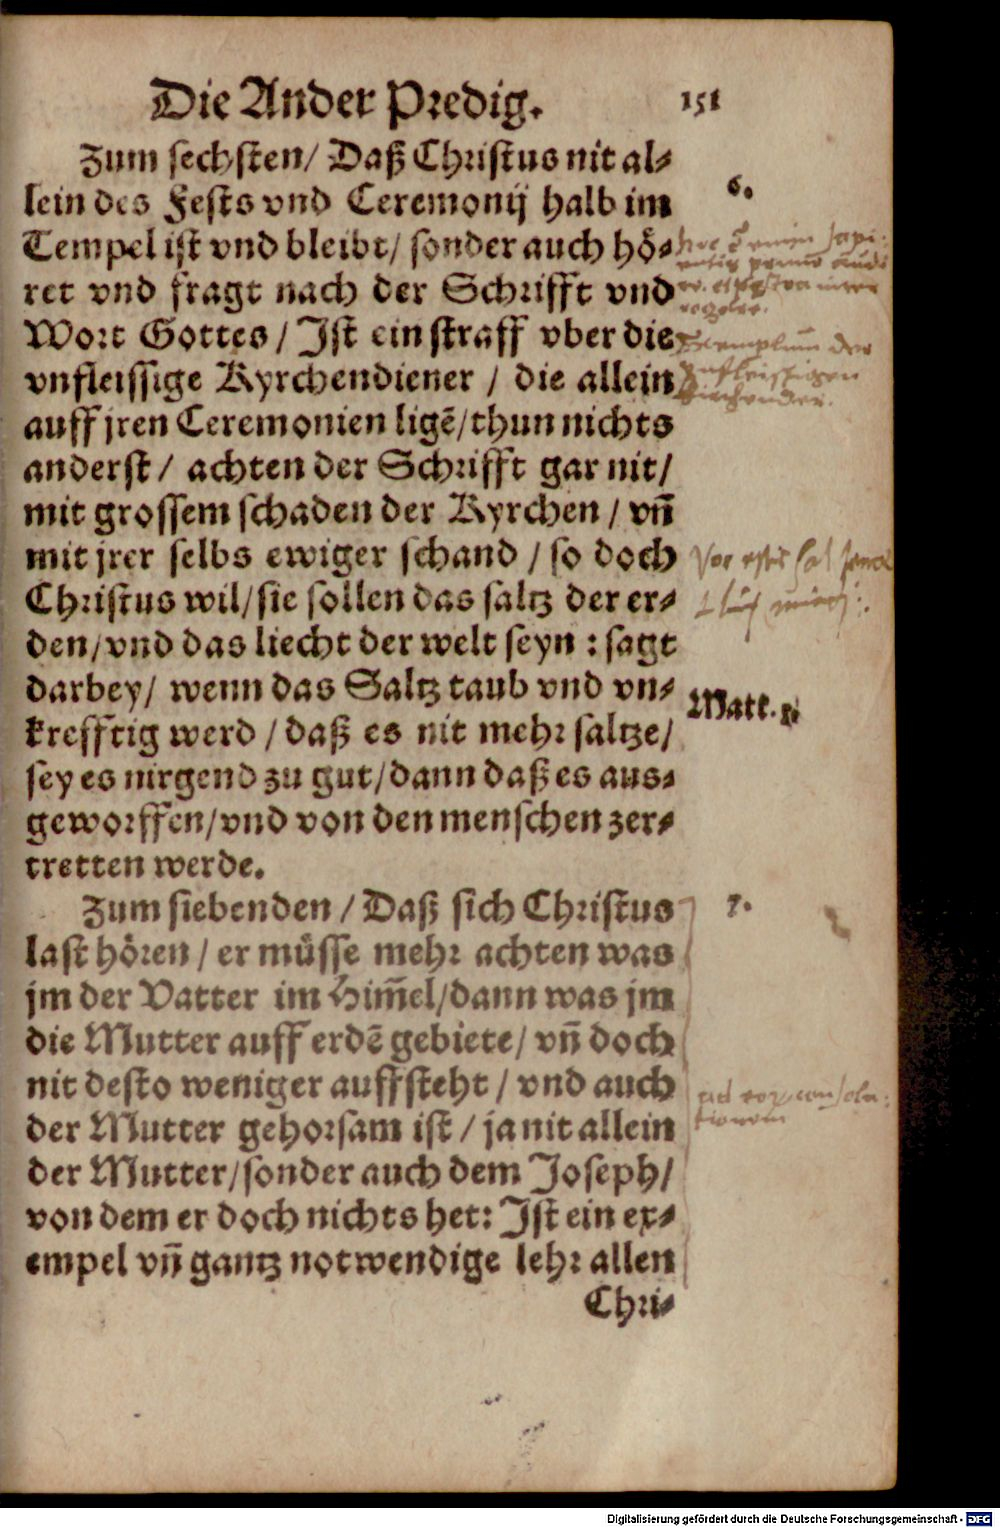 Die Ander Predig. 151
Zum sechsten/ Daß Christus nit al⸗
lein des Fests vnd Ceremonij halb im
6.
Tempel ist vnd bleibt/ sonder auch hö⸗
ret vnd fragt nach der Schrifft vnd
Wort Gottes/ Ist ein straff vber die
vnfleissige Kyrchendiener / die allein
auff jren Ceremonien ligẽ/thun nichts
anderst/ achten der Schrifft gar nit/
mit grossem schaden der Kyrchen / vñ
mit jrer selbs ewiger schand / so doch
Christus wil/sie sollen das saltz der er⸗
den/vnd das liecht der welt seyn : sagt
darbey/ wenn das Saltz taub vnd vn⸗
Matt.
krefftig werd / daß es nit mehr saltze/
sey es nirgend zu gut/dann daß es aus⸗
geworffen/vnd von den menschen zer⸗
tretten werde.
Zum siebenden / Daß sich Christus
7.
last hören / er müsse mehr achten was
jm der Vatter im Him̃el/dann was jm
die Mutter auff erdẽ gebiete/ vñ doch
nit desto weniger auffsteht / vnd auch
der Mutter gehorsam ist / ja nit allein
der Mutter/sonder auch dem Joseph/
von dem er doch nichts het: Ist ein ex⸗
empel vñ gantz notwendige lehr allen
Chri⸗
Exemplum der
vnfleissigen
Vos estis sal terrae
ad consola⸗
tionem
Digitalisierung gefördert durch die Deutsche Forschungsgemeinschaft - DFG